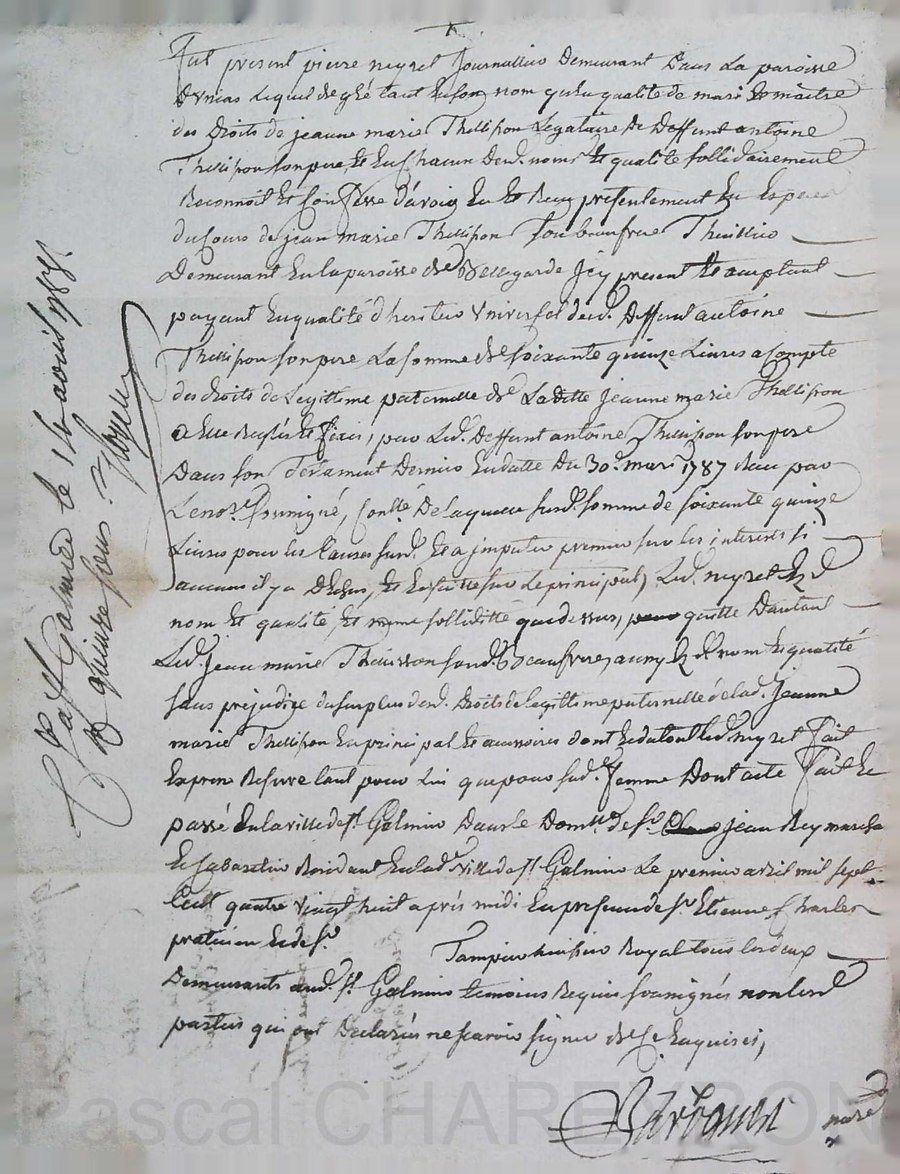 Fut present pierre neyret Journallier Demeurant Dans La paroisse
Lequel de gré tant en son nom qu'en qualité de mari Et maitre
des Droits de jeanne marie Thellison Legataire De Deffunt antoine
Thellison son pere, Et en Chacun desd. noms Et qualité sollidairement
Reconnoit Et Confesse d'avoir Eu Et Reçu présentement En Especes
du Cours de jean marie Thellison son beaufrere
Demeurant En la paroisse de Bellegarde Icy present Et acceptant
payant En qualité d'heritier Universel dud. Deffunt antoine
Thellison son pere La somme de soixante quinze Livres a Compte
des droits de Legittime paternelle de Laditte Jeanne marie Thellison
a Elle Reglés Et fixés, par Led. Deffunt antoine Thellison son pere
Dans son Testament Dernier En datte Du 30. mars 1787 Reçu par
Le no.re soussigné, de laquelle susd. somme de soixante quinze
Livres pour les Causes susd. Et a imputer premier sur les interets si
aucuns il y a Et Ensuitte sur Le principal, Led. neyret
nom Et qualité, Et meme solliditté que dessus, quitte Dautant
Led. jean marie susd. Beaufrere, nom Et qualité
sans préjudice du surplus desd. Droits de legittime paternelle de lad. Jeanne
marie Thellison En principal Et accessoires dont Led. neyret fait
Expresse Reserve tant pour Lui que pour sad. femme Dont acte fait Et
passé En la ville de St. Galmier Dans le Domicile de sr. jean Rey marchand
Et Cabaretier Residant En lad. ville de St. Galmier Le premier avril mil sept
Cent quatre vingt huit après midi En presence de sr. Etienne Charles
praticien Et de sr.
Tampier huissier Royal tous les deux
Demeurants aud. St. Galmier temoins Requis soussignés non Lesd.
parties qui ont Declarés ne scavoir signer de Ce Enquises,
Barbouin
nore
C.le a St. Galmier le 14 avril 1788
R. quinze sous
Pascal CHAREYRON